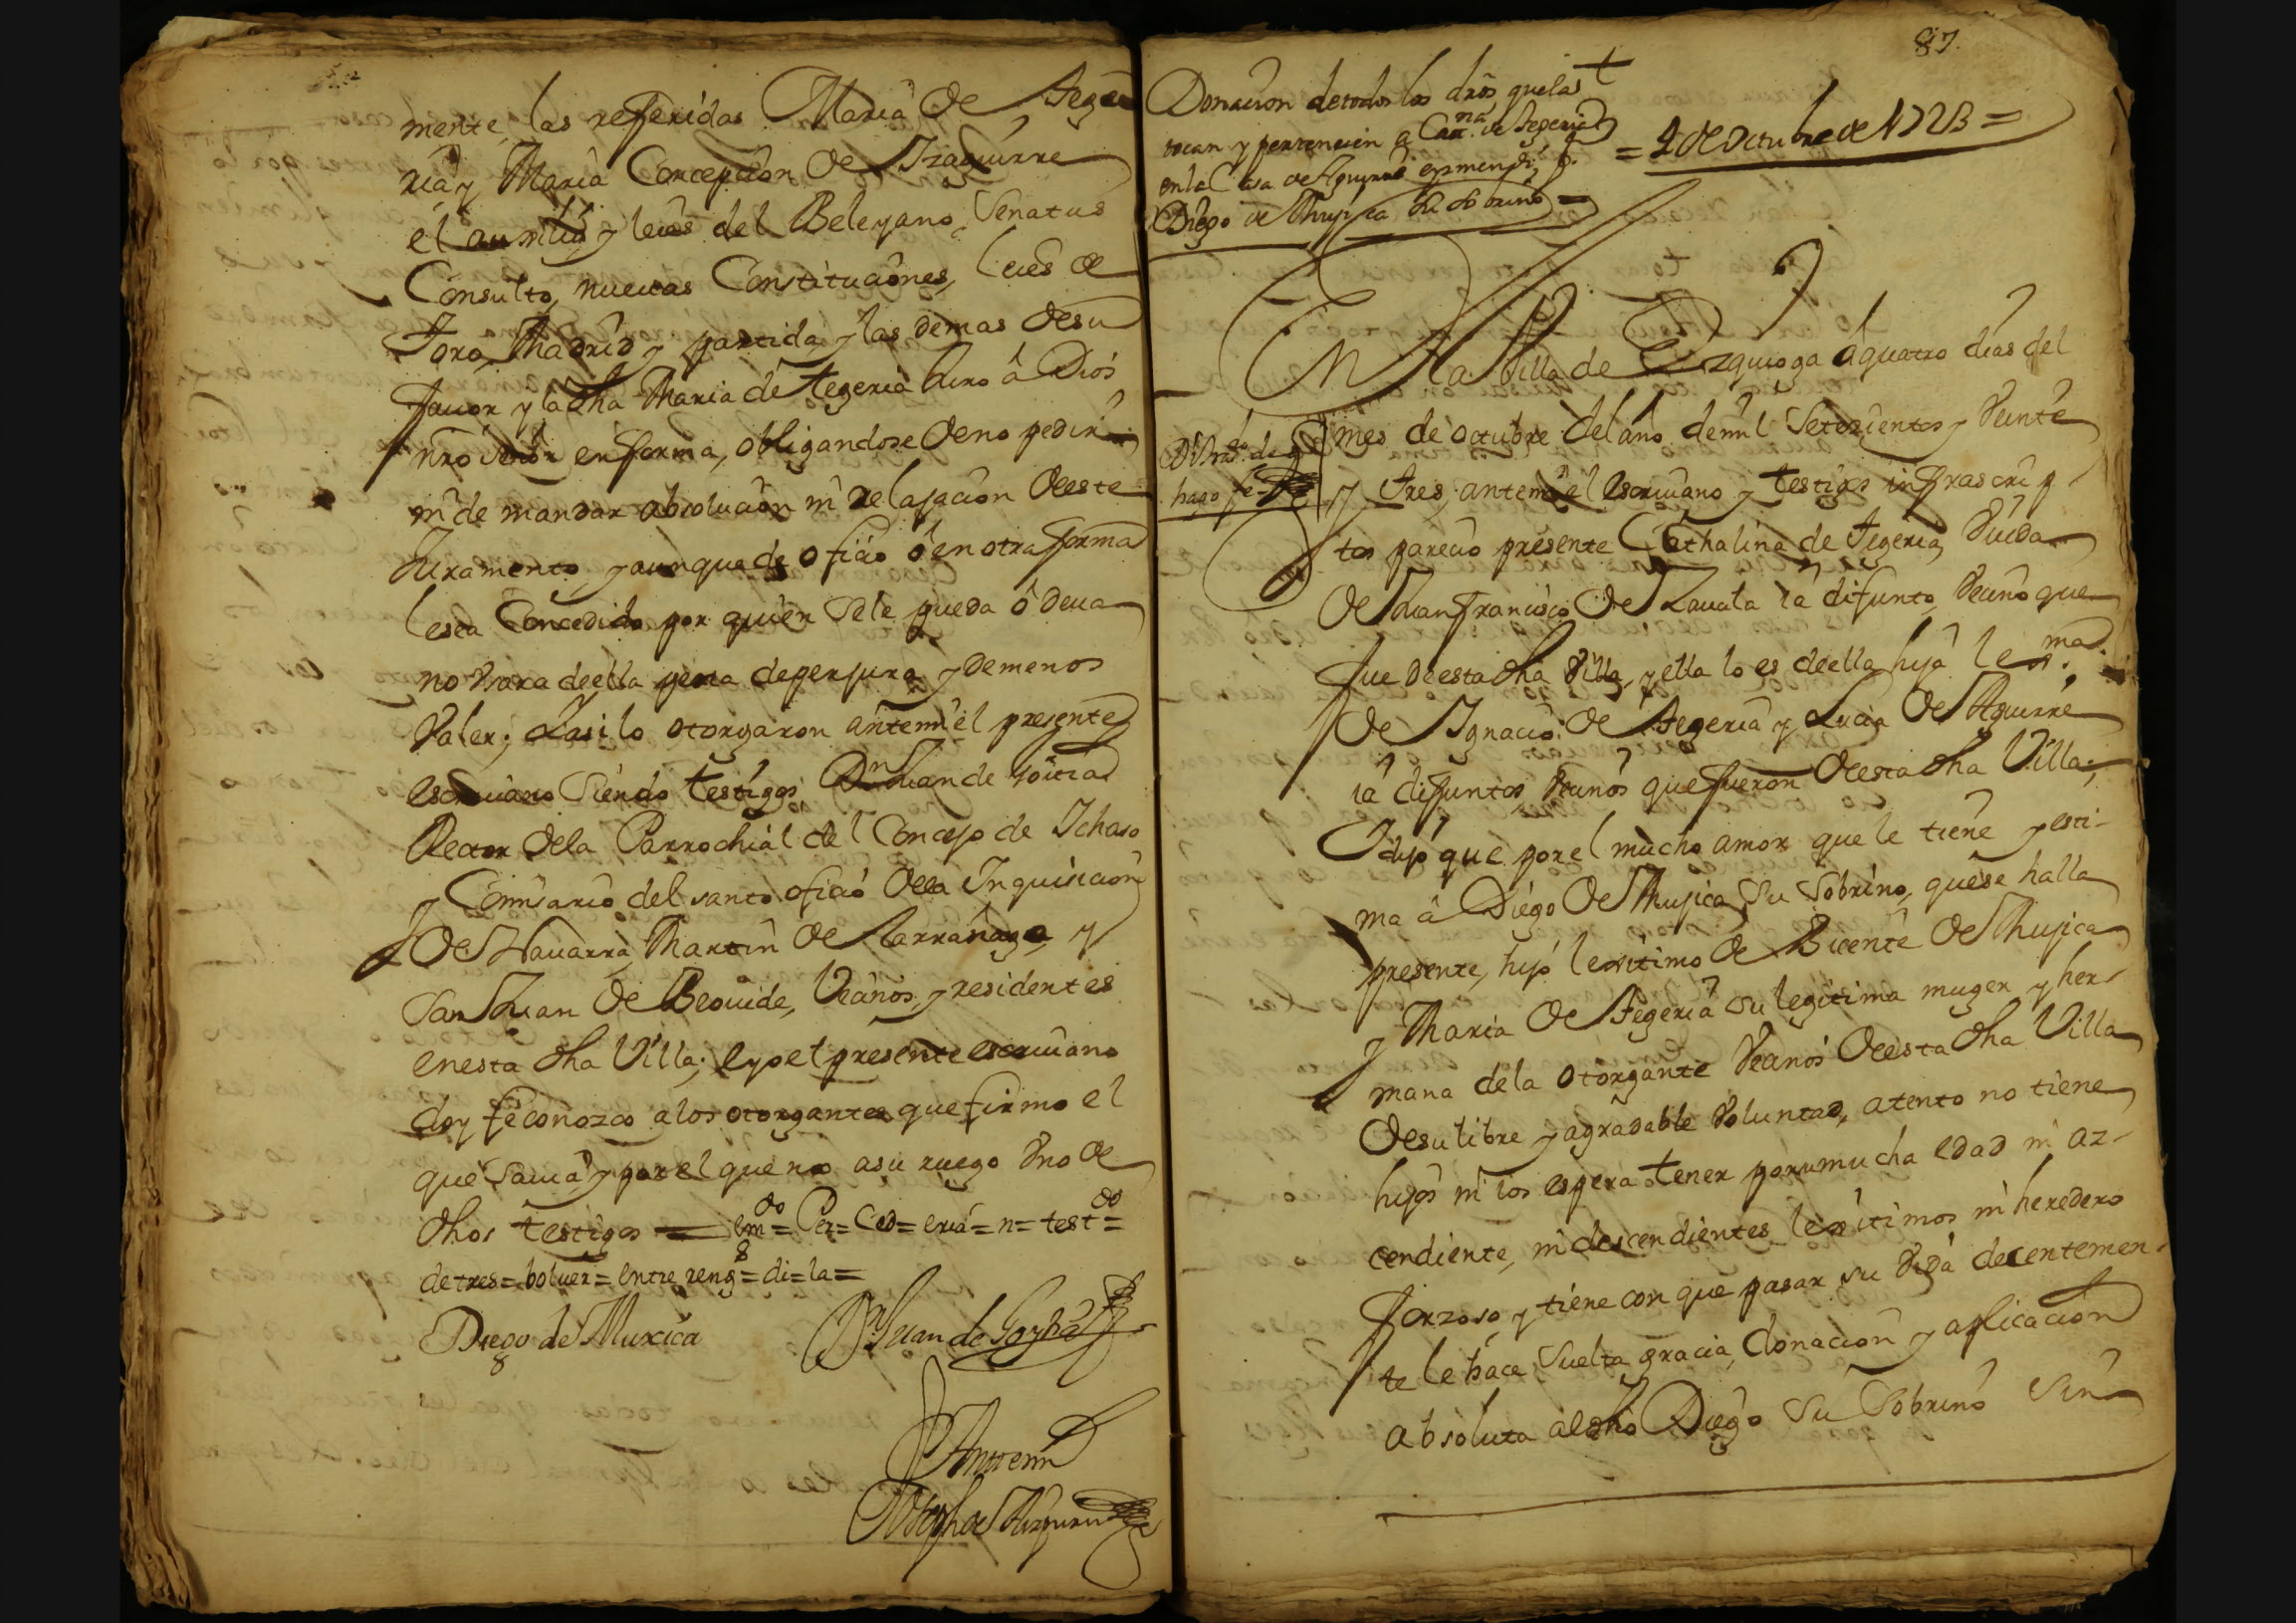 mente, las referidas Maria de Tege
ria, y Maria Concepcion de Yzaguirre
el auxilio y leies del Beleyano, Senatus
Consulto, nueuas Constituciones, leies de
Toro, Madrid y partida, y las demas de su
fauor y la dha Maria de Tegeria Juro â Dios
nro señor en forma, obligandose de no pedir
ni demandar absolucion ni relajacion de este
Juramento, y aunque de oficio ô en otra forma
le sea Concedido por quien se le pueda ô deua
no vsara de ella pena de perjura, y de menos
Valer; y asi lo otorgaron ante mi el presente
escriuano siendo testigos Dn Juan de Goitia
Rector de la Parrochial del Concejo de Ichaso
y Comisario del santo oficio de la Inquisicion
de Nauarra, Martin de Larrañaga, y
San Juan de Beouide, Vecinos, y residentes
en esta dha Villa; e yo el presente escriuano
doy fe conozco a los otorgantes que firmo el
que sauia, y por el que no a su ruego Vno de
dhos testigos = em.do = Per = Ced = eria = n = test.do =
de tres = boluer = entre reng.s = di = la =
Diego de Muxica
Dn Juan de Goytia
Ante mi
Joseph de Aizpuru
87
Donacion de todos los dros que las
tocan y pertenecen a Cat.na de Tegeria
en la Casa de Aguirre
Diego de Mujica su sobrino =
= 4 de Octubre de 1723 =
En la Villa de Ezquioga â quatro dias del
mes de octubre del año de mil Setecientos y Veinte
hago fe
y tres, ante mi el escriuano y testigos infrascrip
tos parecio presente Cathalina de Tegeria, Viuda
de Juan Francisco de Zauala ia difunto, Vecino que
fue de esta dha Villa, y ella lo es de ella, hija lex.ma
de Ignacio de Tegeria y Lucia de Aguirre
ia difuntos, Vecinos que fueron de esta dha Villa;
y dijo que por el mucho amor que le tiene y esti-
ma â Diego de Mujica, su sobrino, que se halla
presente, hijo lexitimo de Bicente de Mujica
y Maria de Tegeria su legitima muger y her-
mana de la otorgante Vecinos de esta dha Villa
de su libre y agradable Voluntad, atento no tiene
hijos ni los espera tener por su mucha edad ni az-
cendiente, ni descendientes lexitimos ni heredero
forzoso, y tiene con que pasar su Vida decentemen-
te le hace suelta gracia, donacion y aplicacion
absoluta al dho Diego su Sobrino Sin